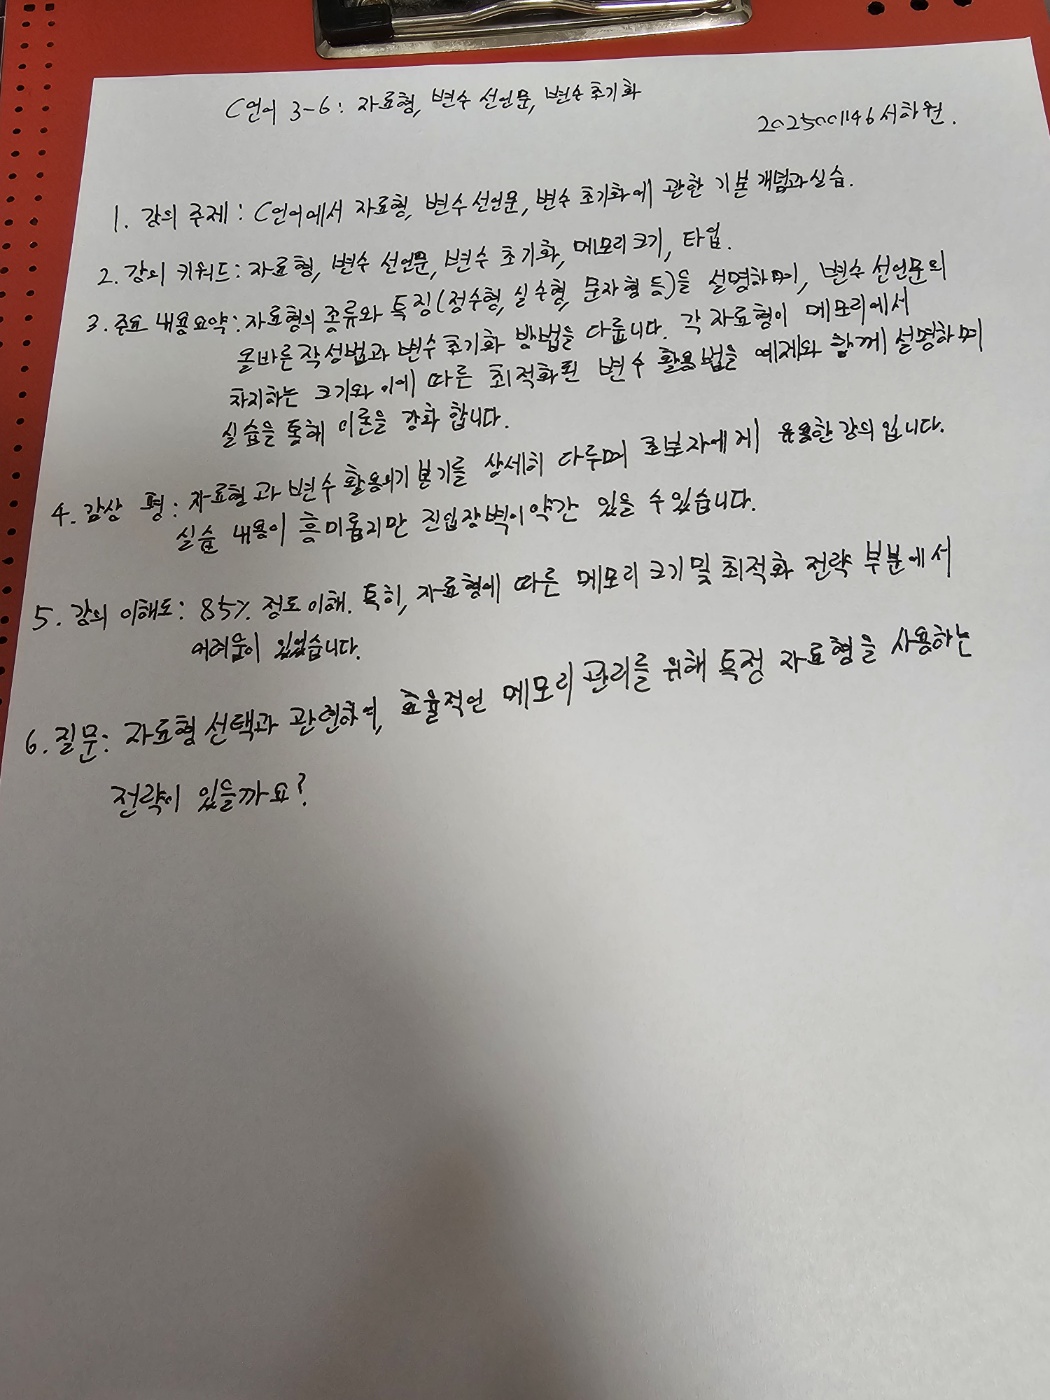 C언어 3-6: 자료형, 변수 선언문, 변수 초기화
2025001146 서하원.
1. 강의 주제: C언어에서 자료형, 변수 선언문, 변수 초기화에 관한 기본 개념과 실습.
2. 강의 키워드: 자료형, 변수 선언문, 변수 초기화, 메모리 크기, 타입.
3. 주요 내용요약: 자료형의 종류와 특징(정수형, 실수형, 문자형 등)을 설명하며, 변수 선언문의
올바른 작성법과 변수 초기화 방법을 다룹니다. 각 자료형이 메모리에서
차지하는 크기와 이에 따른 최적화된 변수 활용법을 예제와 함께 설명하며
실습을 통해 이론을 강화 합니다.
4. 감상 평: 자료형과 변수 활용의 기본기를 상세히 다루며 초보자에게 유용한 강의 입니다.
실습 내용이 흥미롭지만 진입장벽이 약간 있을 수 있습니다.
5. 강의 이해도: 85% 정도 이해. 특히, 자료형에 따른 메모리 크기 및 최적화 전략 부분에서
어려움이 있었습니다.
6. 질문: 자료형 선택과 관련하여, 효율적인 메모리 관리를 위해 특정 자료형을 사용하는
전략이 있을까요?